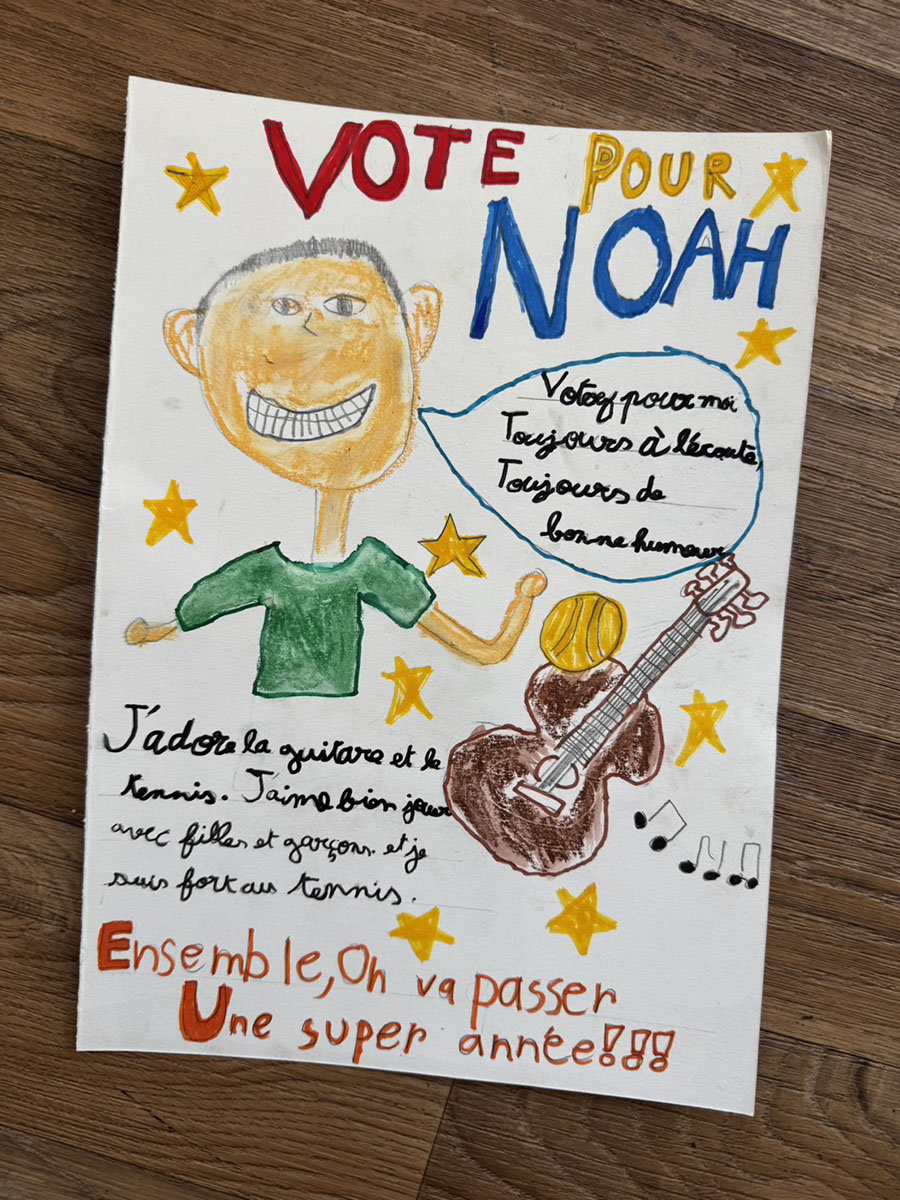 VOTE POUR
NOAH
Votez pour moi
Toujours à l'écoute,
Toujours de
bonne humeur
J'adore la guitare et le
tennis. J'aime bien jouer
avec filles et garçons. et je
suis fort au tennis.
Ensemble, On va passer
Une super année!!!